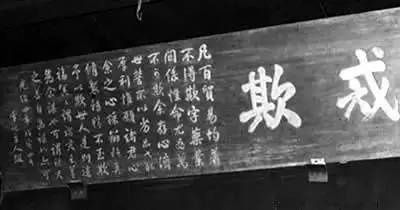 戒欺
凡百貿易均著
不得欺字藥業
關係性命尤為萬
不可欺余存心濟
世誓不以劣品弋取
厚利惟願諸君心
余之心採辦務真
修製務精不至欺
予以欺世人是則造
福冥冥謂諸君之
善為余謀也可謂諸君
之善自為謀也亦可